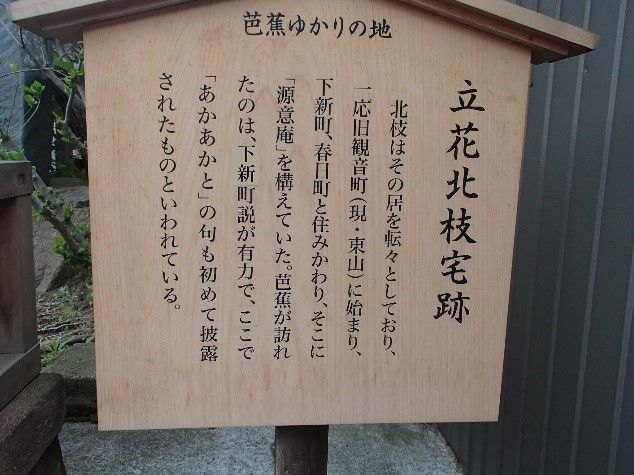 芭蕉ゆかりの地
立花北枝宅跡
北枝はその居を転々としており、
一応旧観音町（現・東山）に始まり、
下新町、春日町と住みかわり、そこに
「源意庵」を構えていた。芭蕉が訪れ
たのは、下新町説が有力で、ここで
「あかあかと」の句も初めて披露
されたものといわれている。